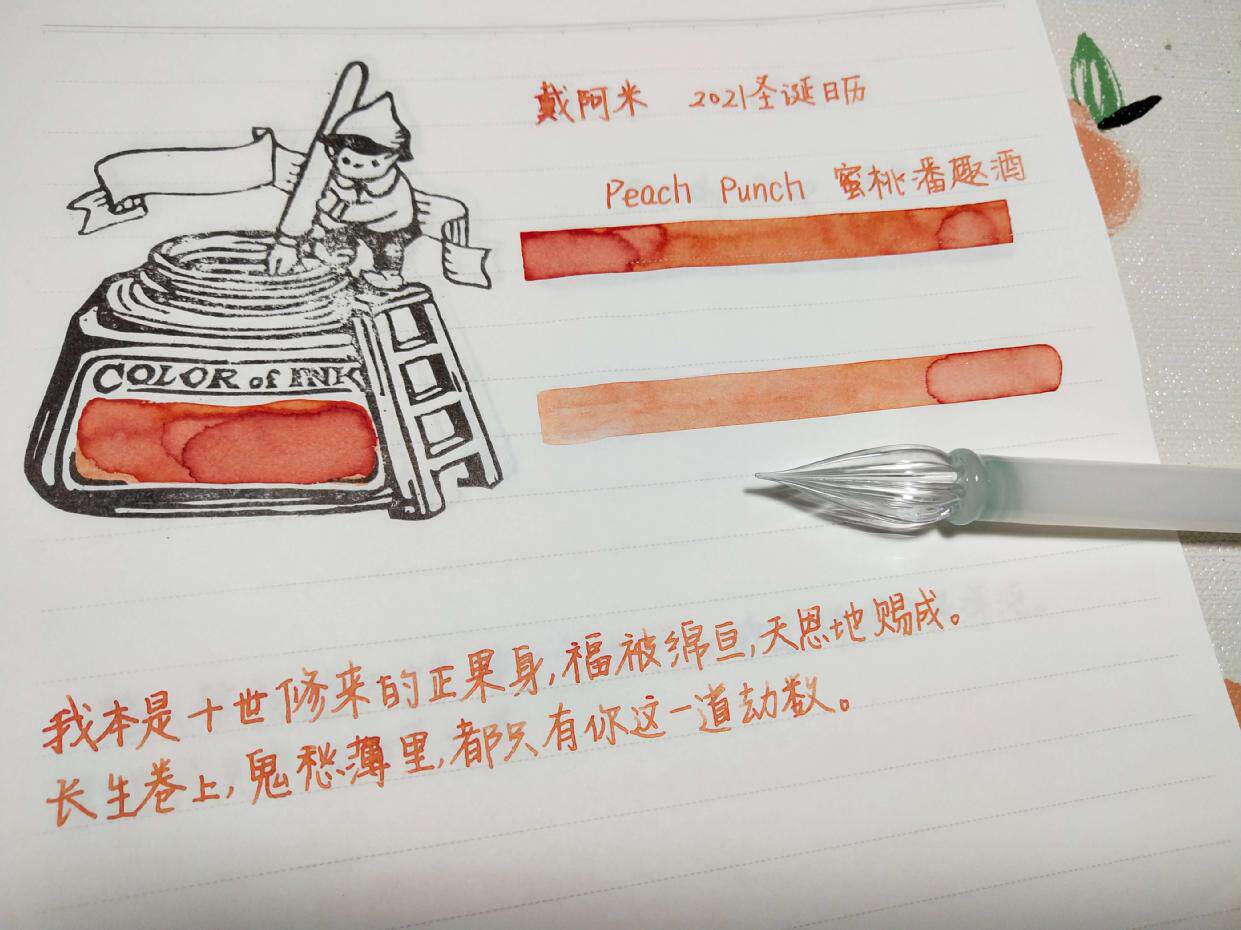 戴阿米 2021圣诞日历
Peach Punch 蜜桃潘趣酒
COLOR of INK
我本是十世修来的正果身,福被绵亘,天恩地赐成。
长生卷上,鬼愁薄里,都只有你这一道劫数。